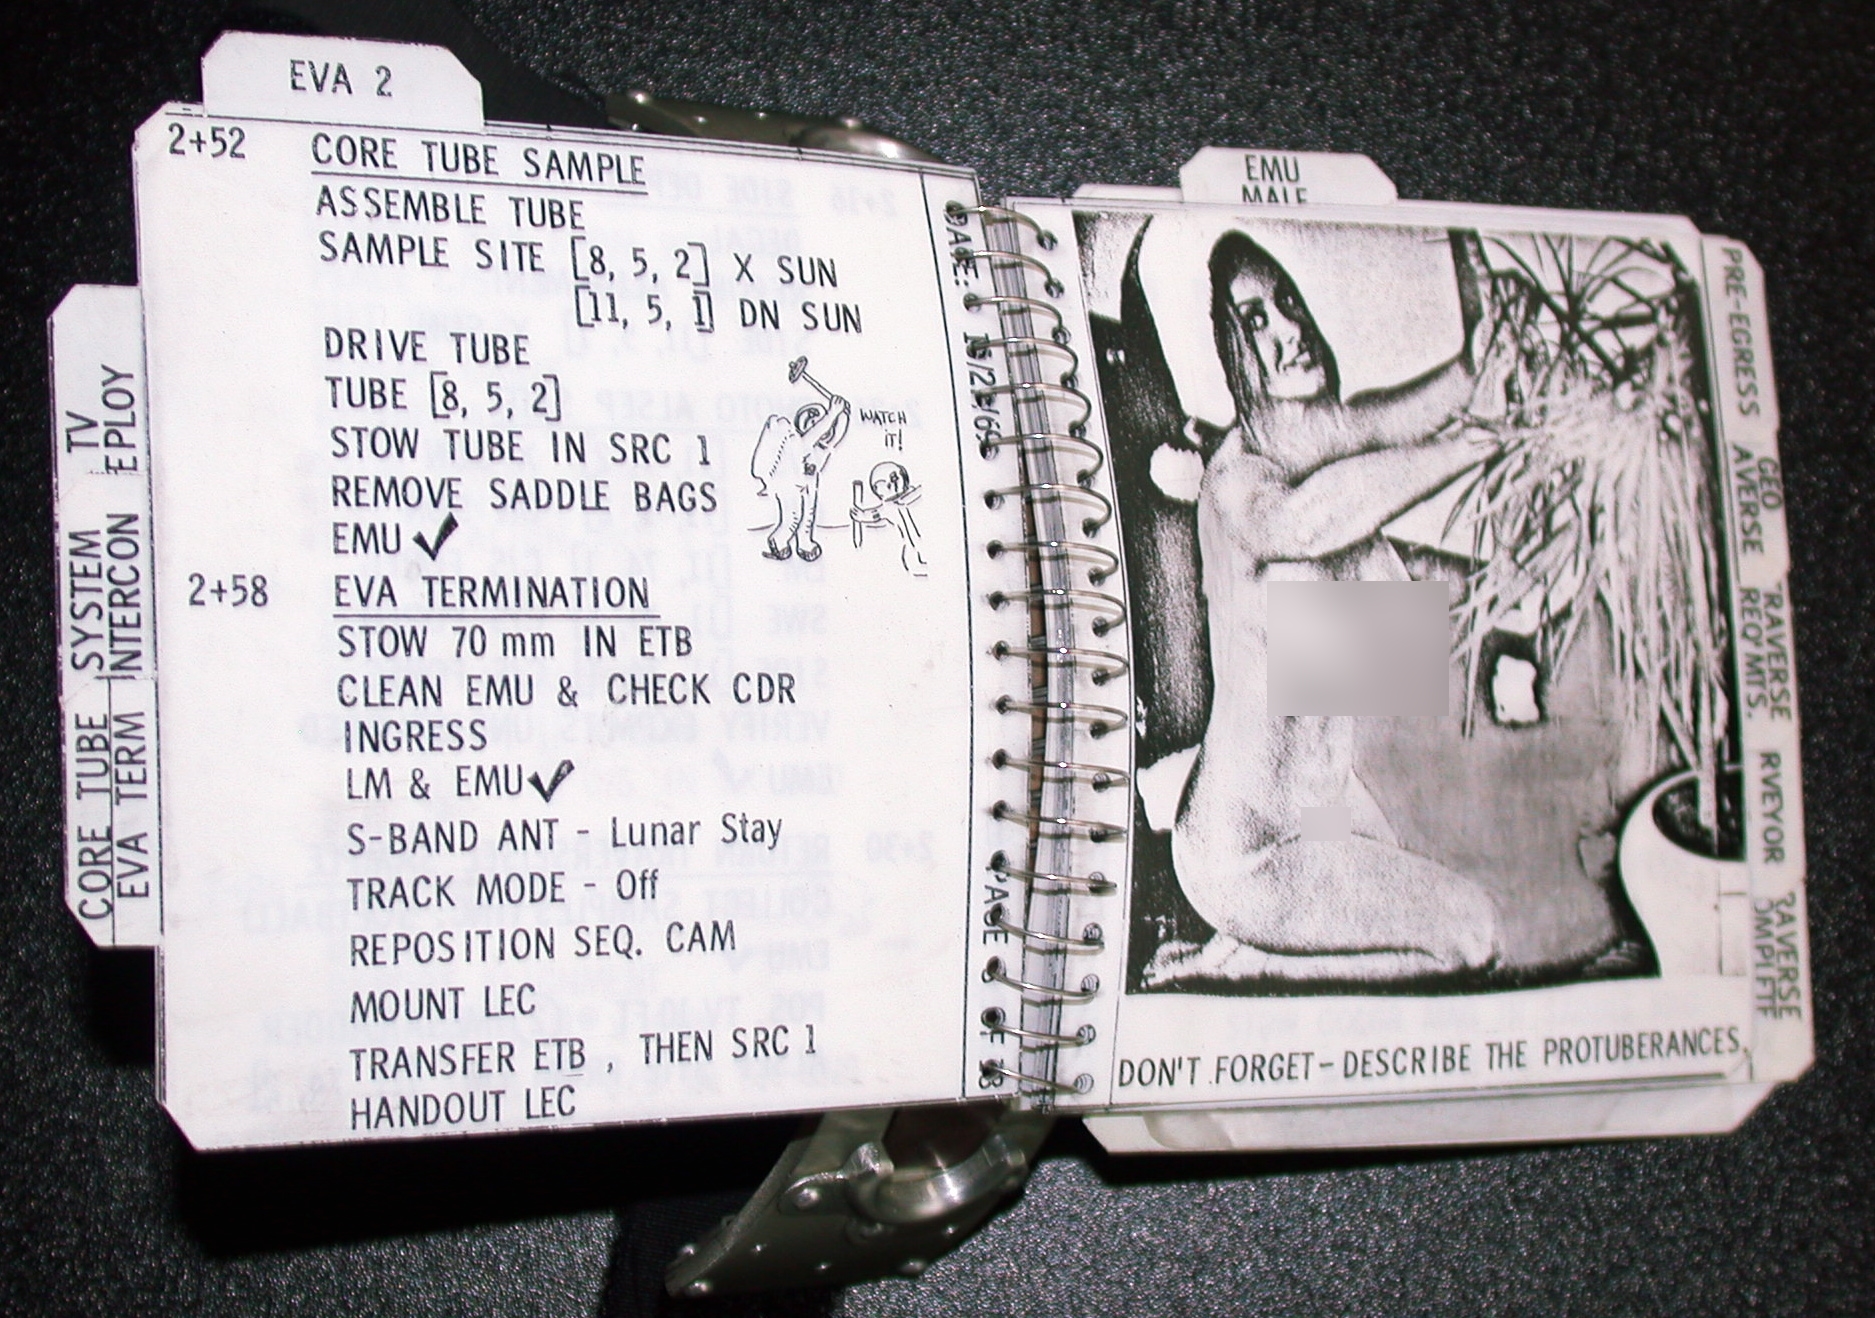 EVA 2
2+52 CORE TUBE SAMPLE
ASSEMBLE TUBE
SAMPLE SITE [8, 5, 2] X SUN
[11, 5, 1] DN SUN
DRIVE TUBE
TUBE [8, 5, 2]
STOW TUBE IN SRC 1
REMOVE SADDLE BAGS
EMU ✓
WATCH
IT!
2+58 EVA TERMINATION
STOW 70 mm IN ETB
CLEAN EMU & CHECK CDR
INGRESS
LM & EMU ✓
S-BAND ANT - Lunar Stay
TRACK MODE - Off
REPOSITION SEQ. CAM
MOUNT LEC
TRANSFER ETB, THEN SRC 1
HANDOUT LEC
CORE TUBE SYSTEM TV
EVA TERM INTERCON EPLOY
EMU
MALF
DON'T FORGET - DESCRIBE THE PROTUBERANCES.
PRE-EGRESS
GEO
AVERSE
TRAVERSE
REQ'MTS.
RVEYOR